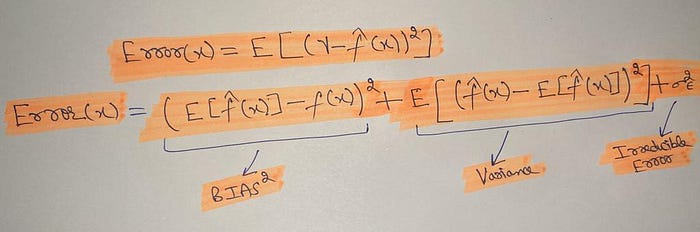 Error(x) = E[(Y-f̂(x))²]
Error(x) = (E[f̂(x)]-f(x))² + E[(f̂(x)-E[f̂(x)])²] + σ²ϵ
BIAS²
Variance
Irreducible
Error